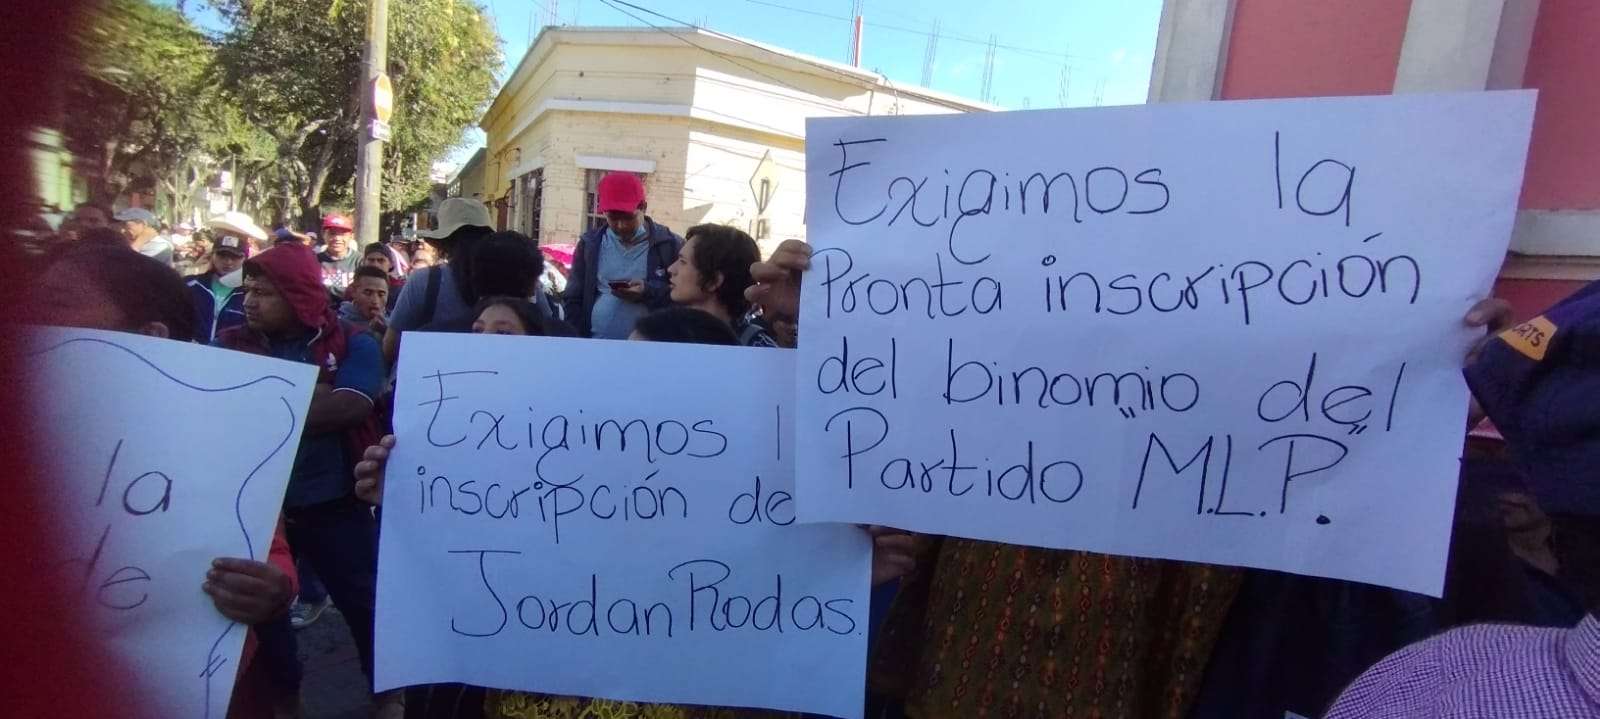 la
de
Exigimos l
inscripción de
Jordan Rodas.
Exigimos la
Pronta inscripción
del binomio del
Partido "M.L.P."
ORTS